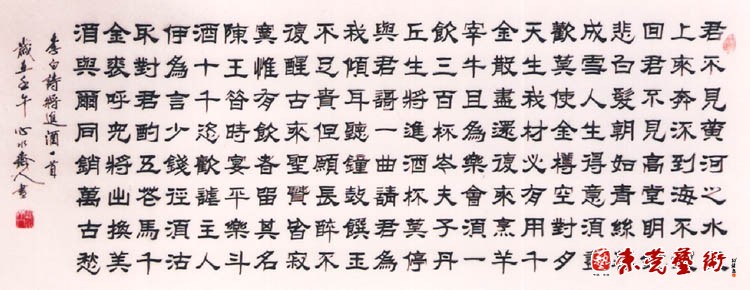 君不見黄河之水
上來奔流到海不
回君不見高堂明
悲白髮朝如青絲
成雪人生得意須
歡莫使金樽空對夕
天生我材必有用千
金散盡還復來烹羊
宰牛且為樂會須一
飲三百杯岑夫子丹
丘生將進酒杯莫停
與君謌一曲請君為
我傾耳聽鐘鼓饌玉
不足貴但願長醉不
復醒古來聖賢皆寂
寞惟有飲者留其名
陳王昔時宴平樂斗
酒十千恣歡謔主人
伊為言少錢徑須沽
取對君酌五花馬千
金裘呼兒將出換美
酒與爾同銷萬古愁
李白詩將進酒一首
歲在壬午心水齋人書
藝術